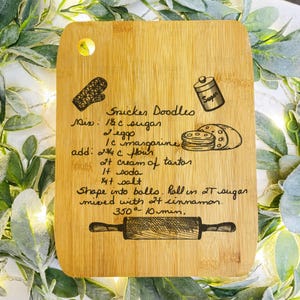 Snicker Doodles
Mix: 1½ c sugar
2 eggs
1 c margarine
add: 2¾ c flour
2t cream of tartar
1t soda
¼t salt
Shape into balls. Roll in 2T sugar
mixed with 2t cinnamon.
350° 10 min.